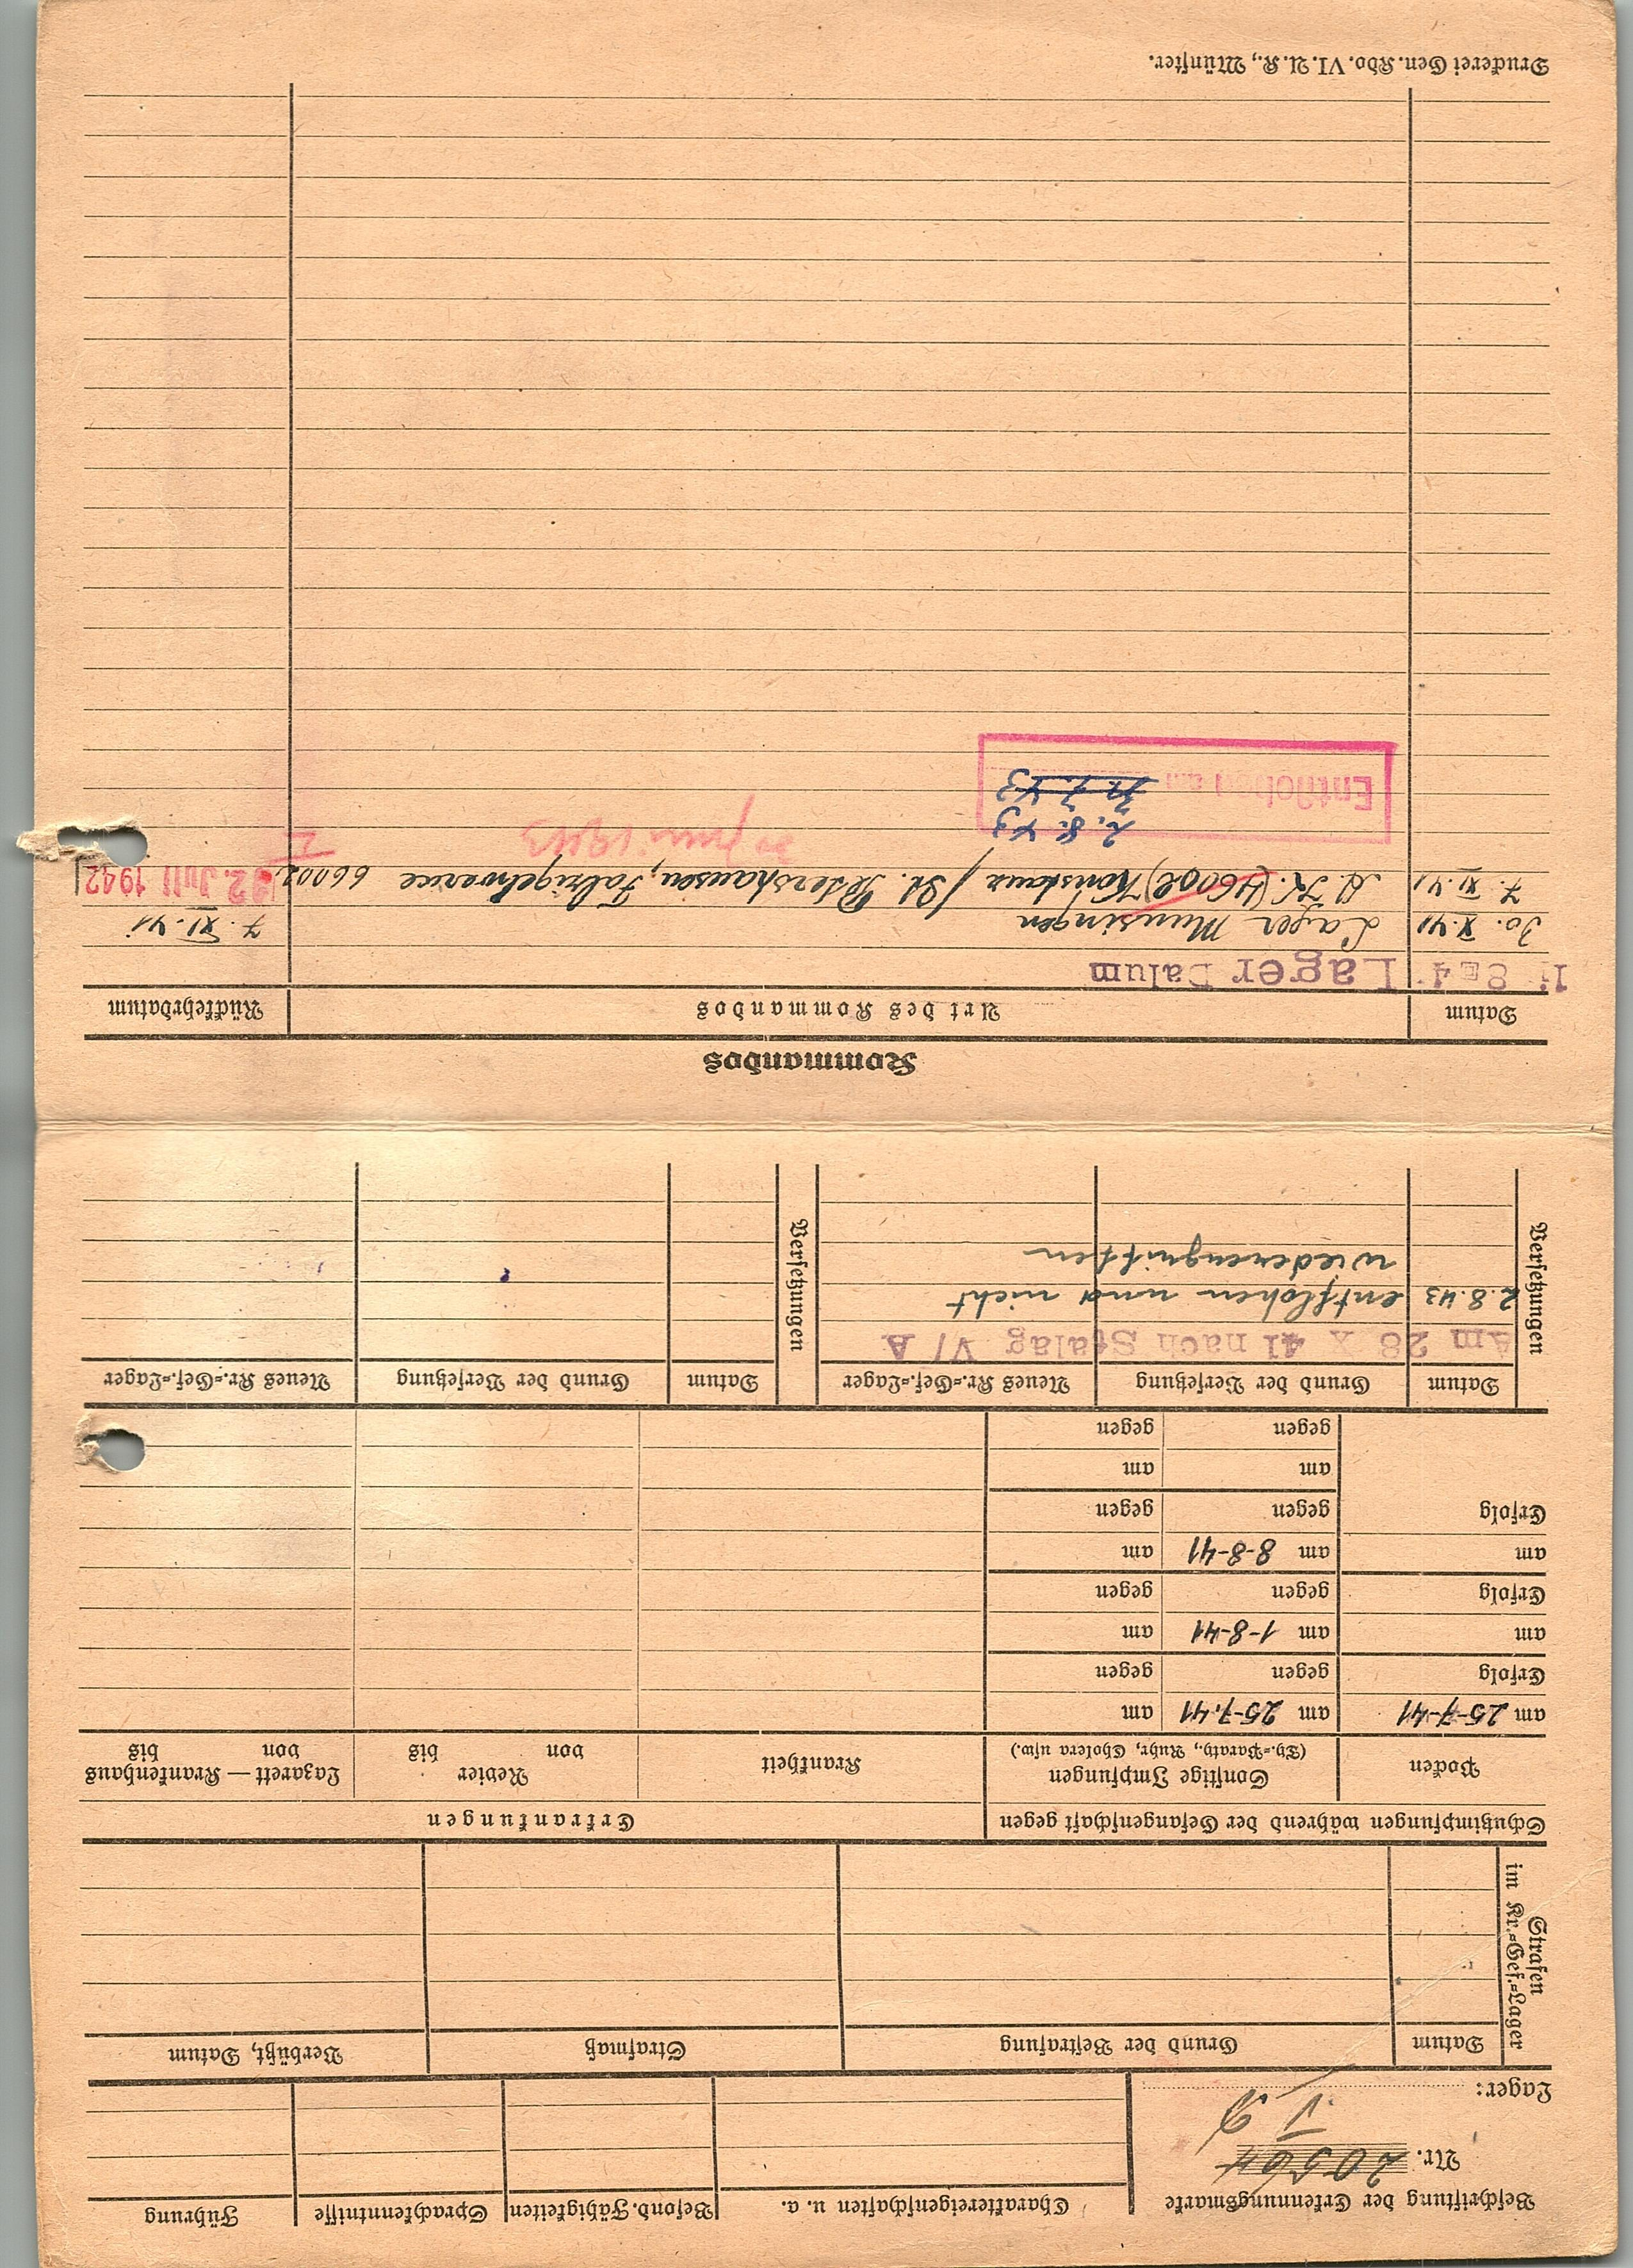 Beschriftung der Erkennungsmarke
Nr. 20564
Lager: V
Charaktereigenschaften u. a.
Besond. Fähigkeiten
Sprachkenntnisse
Führung
Strafen
im Kr.-Gef.-Lager
Datum
Grund der Bestrafung
Strafmaß
Verbüßt, Datum
Schutzimpfungen während der Gefangenschaft gegen
Erkrankungen
Pocken
Sonstige Impfungen
(Ty.-Paraty., Ruhr, Cholera usw.)
Krankheit
Revier
von bis
Lazarett — Krankenhaus
von bis
am 25-7-41
am 25-7.41
am
Erfolg
gegen
gegen
am
am 1-8-41
am
Erfolg
gegen
gegen
am
am 8-8-41
am
Erfolg
gegen
gegen
am
am
gegen
gegen
Versetzungen
Datum
Grund der Versetzung
Neues Kr.-Gef.-Lager
Versetzungen
Datum
Grund der Versetzung
Neues Kr.-Gef.-Lager
Am 28 X 41 nach Stalag V/A
2.8.43 entflohen und nicht
wiederergriffen
Kommandos
Datum
Art des Kommandos
Rückkehrdatum
Lager Dalum
30. X. 41 Lager Münsingen 7. XI. 41
7. XI. 41 A.K. (46002) Konstanz / St. Petershausen, 66002 22. Juli 1942
2. 8. 43
Entflohen am
Druckerei Gen. Kdo. VI. A. K., Münster.